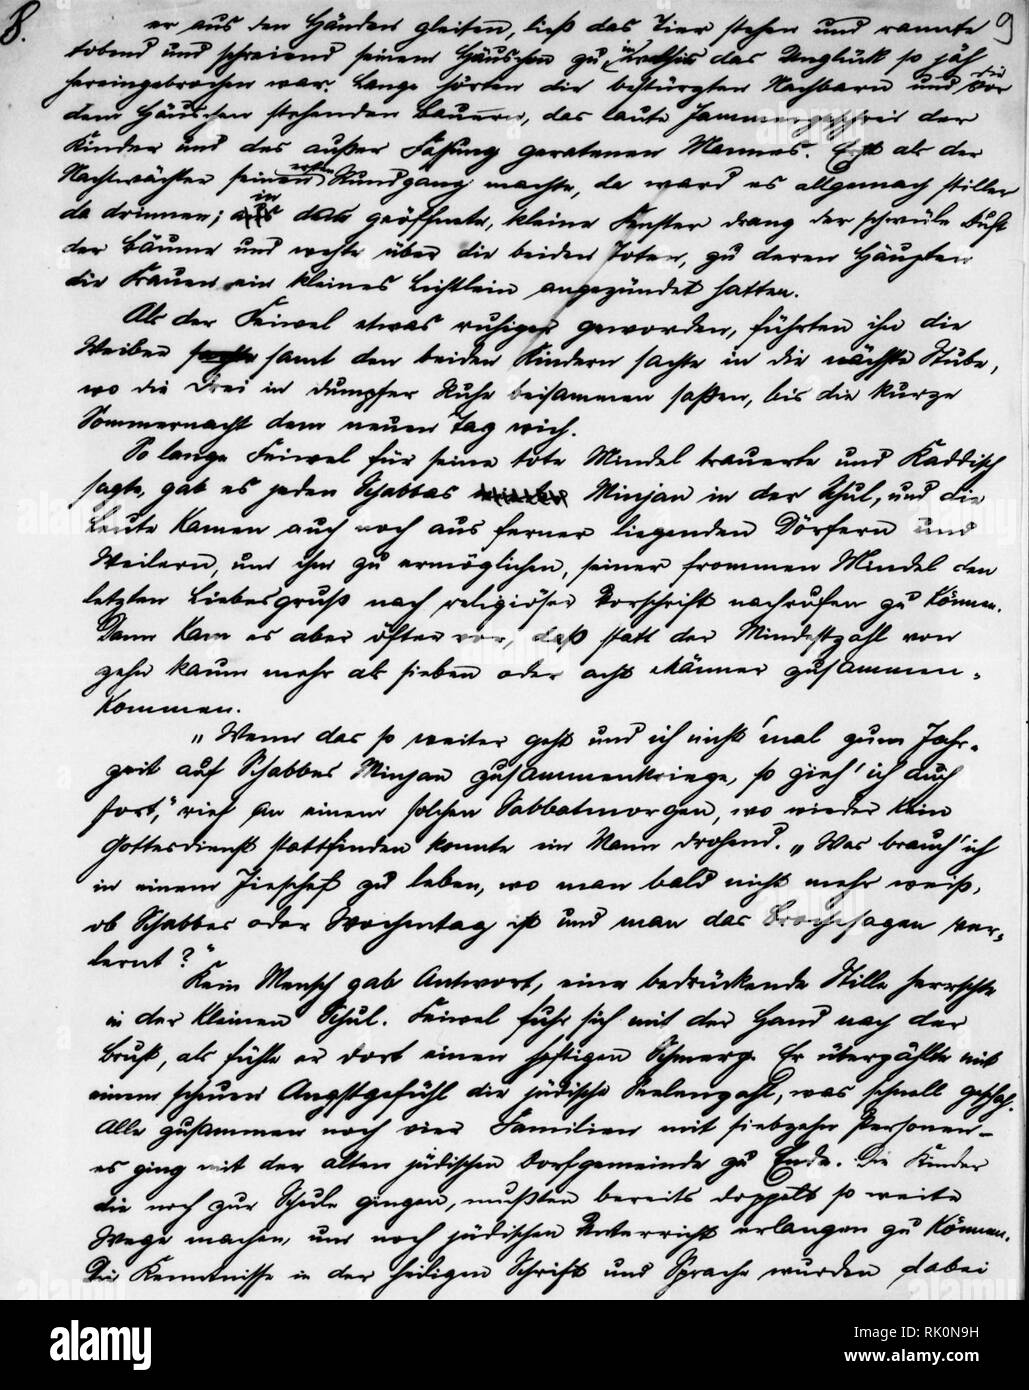 8.
9
er aus den Händen gleiten, ließ das Tier stehen und rannte
tobend und schreiend seinem Häuschen zu, in welches das Unglück so jäh
hereingebrochen war. Lange hörten die bestürzten Nachbarn und die vor
dem Häuschen stehenden Bauern, das laute Jammergeschrei der
Kinder und des außer Fassung geratenen Mannes. Erst als der
Nachtwächter seinen ersten Rundgang machte, da ward es allgemach stiller
da drinnen; in das geöffnete, kleine Fenster drang der schwüle Duft
der Bäume und wehte über die beiden Toten, zu deren Häupten
die Frauen ein kleines Lichtlein angezündet hatten.
Als der Feiwel etwas ruhiger geworden, führten ihn die
Weiber samt den beiden Kindern sachte in die nächste Stube,
wo die Drei in dumpfer Ruhe beisammen saßen, bis die kurze
Sommernacht dem neuen Tag wich.
So lange Feiwel für seine tote Mindel trauerte und Kaddisch
sagte, gab es jeden Schabbas Minjan in der Schul, und die
Leute kamen auch noch aus ferner liegenden Dörfern und
Weilern, um ihm zu ermöglichen, seiner frommen Mindel den
letzten Liebesgruß nach religiöser Vorschrift nachrufen zu können.
Dann kam es aber öfter vor, daß statt der Mindestzahl von
zehn kaum mehr als sieben oder acht Männer zusammen-
kommen.
„Wenn das so weiter geht und ich nicht 'mal zum Jahr-
zeit auf Schabbes Minjan zusammenkriege, so zieh' ich auch
fort," rief an einem solchen Sabbatmorgen, wo wieder kein
Gottesdienst stattfinden konnte ein Mann drohend. „Was brauch' ich
in einem Jieschef zu leben, wo man bald nicht mehr weiß,
ob Schabbes oder Wochentag ist und man das Brochesagen ver-
lernt?"
Kein Mensch gab Antwort, eine bedrückende Stille herrschte
in der kleinen Schul. Feiwel fuhr sich mit der Hand nach der
Brust, als fühle er dort einen heftigen Schmerz. Er überzählte mit
einem scheuen Angstgefühl die jüdische Seelenzahl, was schnell geschah.
Alle zusammen noch vier Familien mit siebzehn Personen –
es ging mit der alten jüdischen Dorfgemeinde zu Ende. Die Kinder
die noch zur Schule gingen, mußten bereits doppelt so weite
Wege machen, um noch jüdischen Unterricht erlangen zu können.
Die Kenntnisse in der heiligen Schrift und Sprache wurden dabei
alamy
Image ID: RK0N9H
www.alamy.com